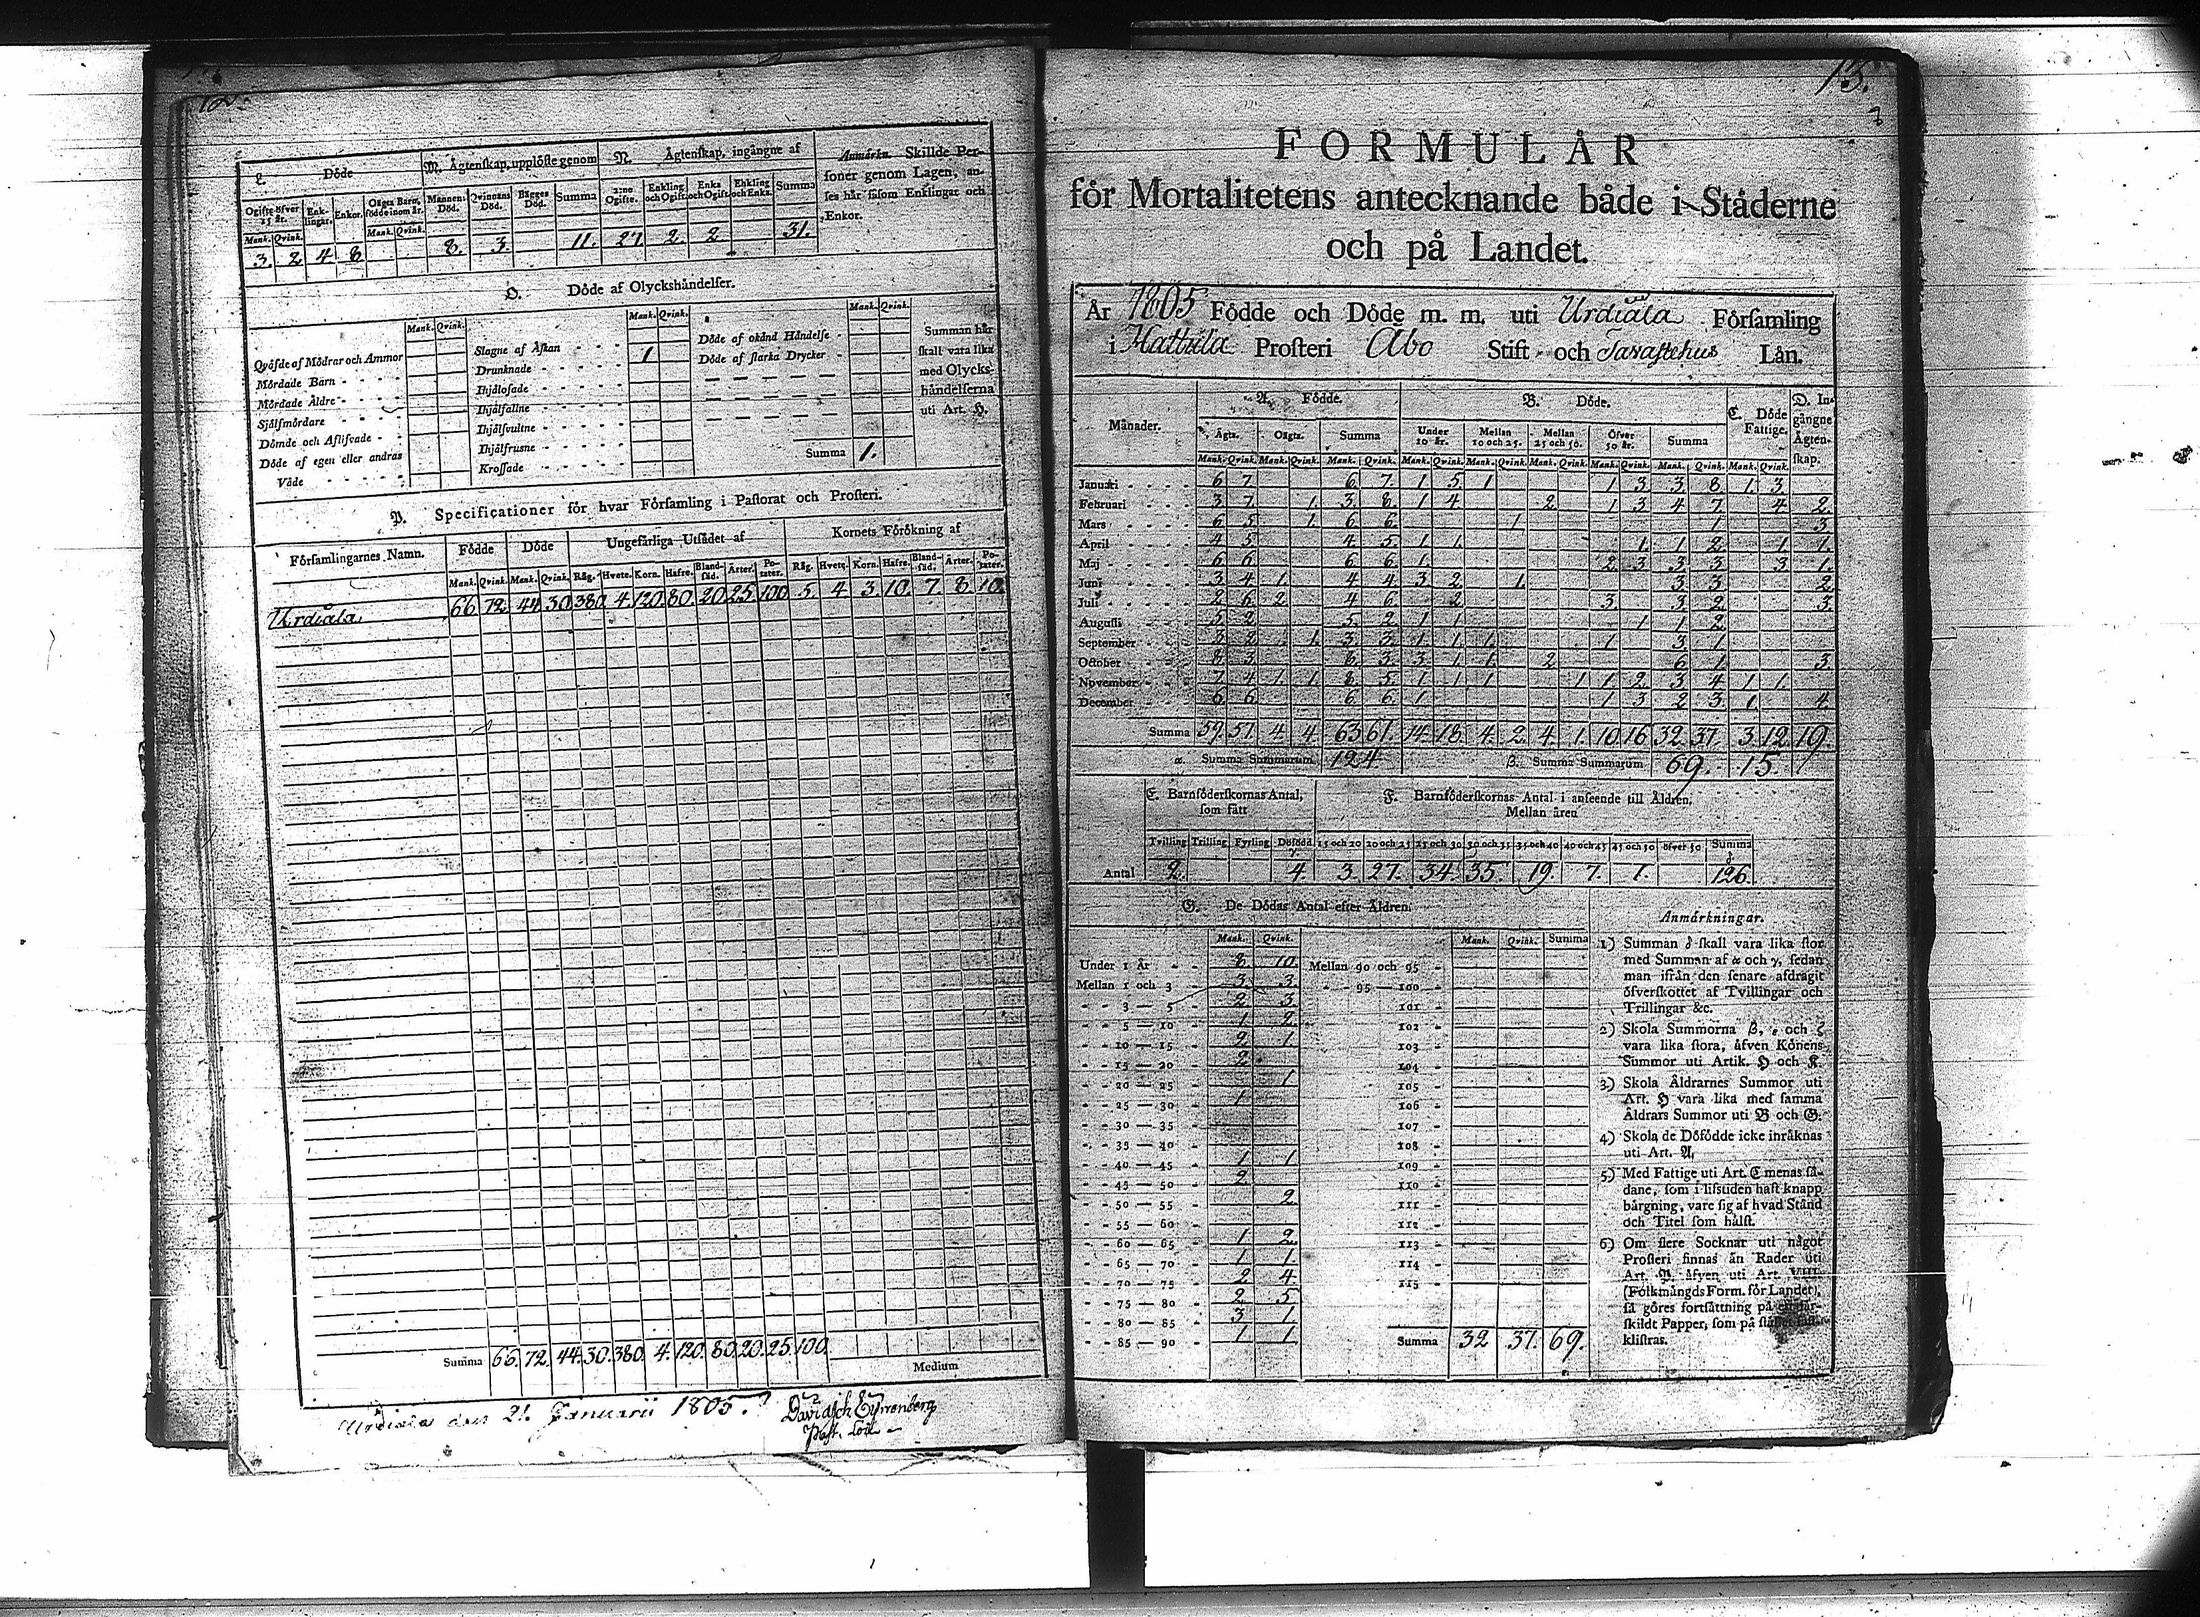 L. Döde
M. Ägtenskap, upplöste genom
N. Ägtenskap, ingångne af
Anmärkn. Skillde Per-
soner genom Lagen, an-
ses här såsom Enklingar och
Enkor.
Ogifte öfver 25 år. Enk-lingar. Enkor. Oägta Barn, födde inom år. Mannens Död. Qvinnans Död. Bägges Död. Summa 2:ne Ogifte. Enkling och Ogift. Enka och Ogift. Enkling och Enka. Summa
Mank. Qvink. Mank. Qvink.
3. 2. 4 8 8. 3. 11. 27 2. 2. 31.
O. Döde af Olyckshändelser.
Mank. Qvink. Mank. Qvink. Mank. Qvink.
Qväfde af Mödrar och Ammor
Mördade Barn
Mördade Äldre
Sjölfmördare
Dömde och Aflifvade
Döde af egen eller andras
Våde
Slagne af Åskan
Drunknade 1
Ihjälosade
Ihjälfallne
Ihjälsvultne
Ihjälfrusne
Krossade
Döde af okänd Händelse
Döde af starka Drycker
Summa 1.
Summan här
skall vara lika
med Olycks-
händelserna
uti Art. H.
P. Specificationer för hvar Församling i Pastorat och Prosteri.
Församlingarnes Namn. Födde Döde Ungefärliga Utsädet af Kornets Förökning af
Mank. Qvink. Mank. Qvink. Råg. Hvete. Korn. Hafre. Bland-säd. Ärter. Po-tater. Råg. Hvete. Korn. Hafre. Bland-säd. Ärter. Po-tater.
Urdiala. 66 72 44 30 380 4. 120. 80. 20 25 100 5. 4 3. 10. 7. 8. 10.
Summa 66. 72. 44. 30. 380. 4. 120. 80. 20. 25. 100
Medium
Urdiala den 21. Januarii 1805.
Past.
15.
FORMULÄR
för Mortalitetens antecknande både i Städerne
och på Landet.
År 1805 Födde och Döde m. m. uti Urdiala Församling
i Hattula Prosteri Åbo Stift och Tavastehus Län.
Månader. A. Födde. B. Döde. C. Döde Fattige. D. In-gångne Ägten-skap.
Ägta. Oägta. Summa Under 10 år. Mellan 10 och 25. Mellan 25 och 50. Öfver 50 år. Summa
Mank. Qvink. Mank. Qvink. Mank. Qvink. Mank. Qvink. Mank. Qvink. Mank. Qvink. Mank. Qvink. Mank. Qvink. Mank. Qvink.
Januari 6 7 6. 7. 1 5 1 1 3 3 8 1. 3
Februari 3 7 1. 3. 8. 1 4 2 1 3 4 7 4 2
Mars 6 5 1. 6 6 1 1 3
April 4 5 4 5 1 1 1 1 2 1 1
Maj 6 6 6 6 1 2 3 3 3 3
Juni 3 4 1 4 4 3 2 1. 3 3 2
Juli 2 6 2 4 6 2 3. 3 2 3
Augusti 5 2 5 2 1 1 1 1 2
September 3 2 1 3 3 1 1 1 1 3 1
October 8 3 8. 3. 3 1 1 2 6 1 3
November 7 4 1 1 8 5 1 1 1 1 1 2 3 4 1 1
December 6 6 6 6 1 1 3 2 3 1 4
Summa 59. 57. 4. 4. 63 61. 14 18 4. 2. 4. 1. 10 16 32 37 3 12 19.
α. Summa Summarum 124 β. Summa Summarum 69. 15.
E. Barnföderskornas Antal, som fått
F. Barnföderskornas Antal i anseende till Åldren.
Mellan åren
Tvilling Trilling Fyrling Döfödd. γ 15 och 20 20 och 25 25 och 30 30 och 35 35 och 40 40 och 45 45 och 50 öfver 50 Summa δ
Antal 2. 4. 3. 27. 34. 35. 19. 7. 1. 126.
G. De Dödas Antal efter Åldren.
Mank. Qvink. Mank. Qvink. Summa
Under 1 År 8 10 Mellan 90 och 95
Mellan 1 och 3 3 3 95 — 100
3 — 5 2 3 101
5 — 10 1 2 102
10 — 15 2 1 103
15 — 20 2 104
20 — 25 1 105
25 — 30 1 106
30 — 35 107
35 — 40 108
40 — 45 1 1 109
45 — 50 2 110
50 — 55 2 111
55 — 60 112
60 — 65 1 2 113
65 — 70 1 1 114
70 — 75 2 4 115
75 — 80 2 5
80 — 85 3 1
85 — 90 1 1 Summa 32 37. 69.
Anmärkningar.
1) Summan δ skall vara lika stor
med Summan af α och γ, sedan
man ifrån den senare afdragit
öfverskottet af Tvillingar och
Trillingar &c.
2) Skola Summorna β, ε och ζ
vara lika stora, äfven Könens
Summor uti Artik. H och K.
3) Skola Åldrarnes Summor uti
Art. H vara lika med samma
Åldrars Summor uti B och G.
4) Skola de Döfödde icke inräknas
uti Art. A.
5) Med Fattige uti Art. C menas så-
dane, som i lifstiden haft knapp
bärgning, vare sig af hvad Stånd
och Titel som hälst.
6) Om flere Socknar uti något
Prosteri finnas än Rader uti
Art. P. äfven uti Art. VIII
(Folkmängds Form. för Landet),
så göres fortsättning på
skildt Papper, som på
klistras.